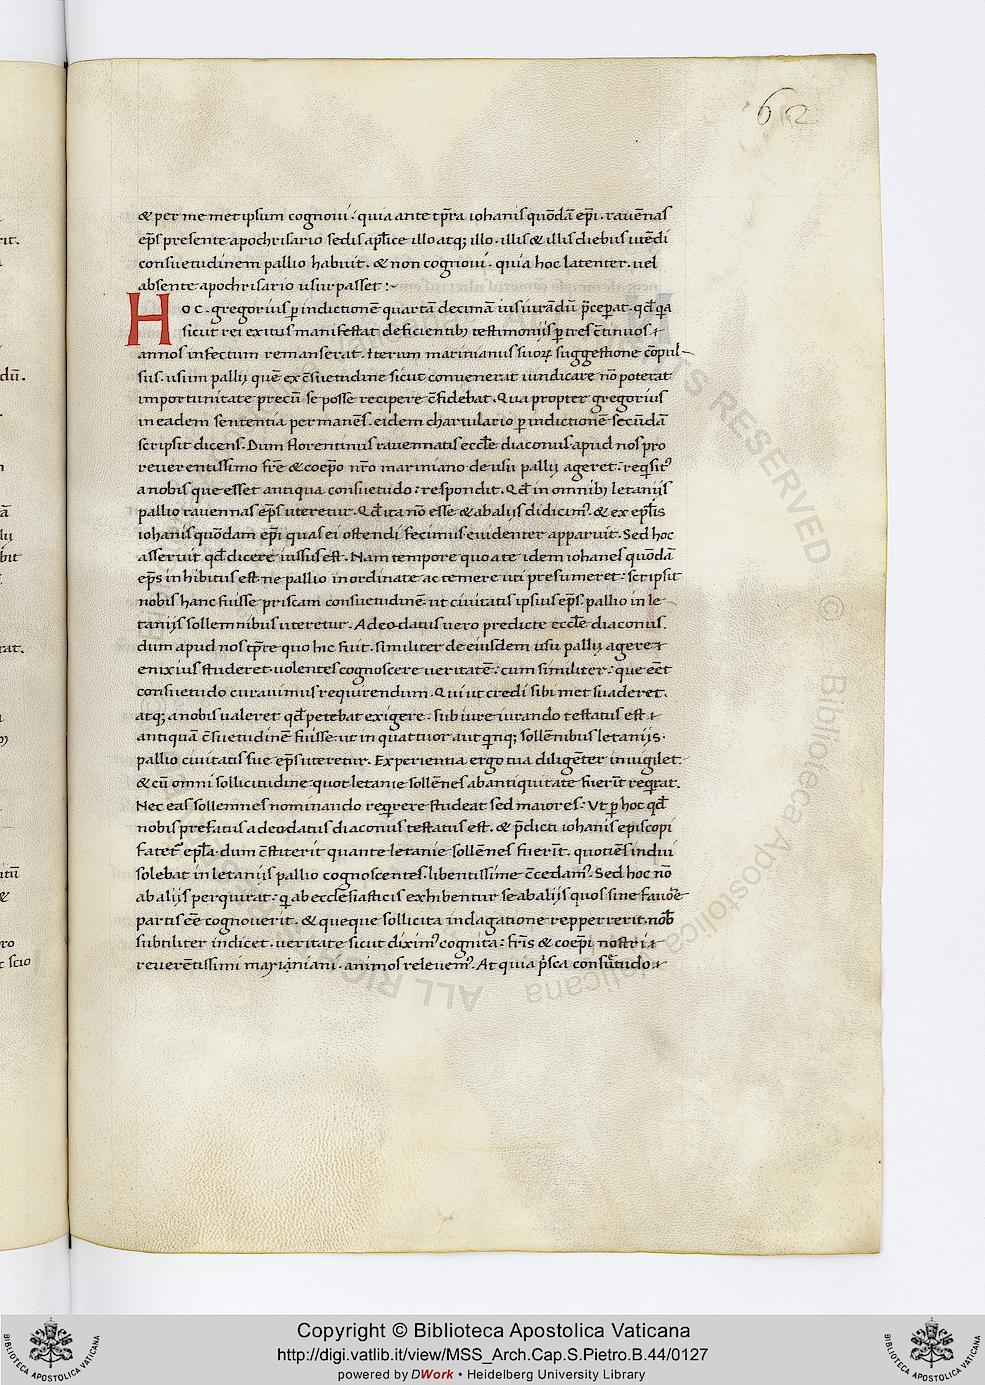 62
& per me metipsum cognoui. quia ante tp̄ra iohanis quōdā ep̄i. rauēnas
ep̄s presente apochrisario sedis apl̄ice illo atq; illo. illis & illis diebus utēdi
consuetudinem pallio habuit. & non cognoui. quia hoc latenter. uel
absente apochrisario usurpasset :~
Hoc. gregorius p̱ indictionē quartā decimā iusiurādū p̄cep̱at. qd̄ q̄a
sicut rei exitus manifestat deficientib; testimonijs p̱ tres c̄tinuos
annos infectum remanserat. Iterum marinianus suoꝝ suggestione cōpul-
sus. usum pallij quē ex c̄suetudine sicut conuenerat uindicare nō poterat
importunitate precū se posse recipere c̄fidebat. Qua propter gregorius
in eadem sententia permanēs. eidem chartulario p̱ indictionē secūdā
scripsit dicens. Dum florentinus rauennatis eccl̄e diaconus. apud nos pro
reuerentissimo fr̄e & coep̄o nr̄o mariniano de usu pallij ageret: reqͥsitꝰ
a nobis que esset antiqua consuetudo: respondit. Qd̄ in omnib; letanijs
pallio rauennas ep̄s uteretur. Qd̄ ita nō esse & ab alijs didicimꝰ. & ex epl̄is
iohanis quōdam ep̄i quas ei ostendi fecimus euidenter apparuit. Sed hoc
asseruit qd̄ dicere iussus est. Nam tempore quo a te idem iohanes quōdā
ep̄s inhibitus est ne pallio inordinate ac temere uti presumeret: scripsit
nobis hanc fuisse priscam consuetudinē. ut ciuitatis ipsius ep̄s. pallio in le-
tanijs sollemnibus uteretur. Adeodatus uero predicte eccl̄e diaconus.
dum apud nos tp̄re quo hic fuit. similiter de eiusdem usu pallij agere
enixius studeret. uolentes cognoscere ueritatē: cum similiter: que eēt
consuetudo curauimus requirendum. Qui ut credi sibimet suaderet.
atq; a nobis ualeret qd̄ petebat exigere. sub iure iurando testatus est
antiquā c̄suetudinē fuisse. ut in quattuor aut qͥnq; sollēnibus letanijs.
pallio ciuitatis sue ep̄s uteretur. Experientia ergo tua diligēter inuigilet.
& cū omni sollicitudine. quot letanie sollēnes ab antiquitate fuerīt reqͥrat.
Nec eas sollemnes nominando reqͥrere studeat sed maiores: Vt p̱ hoc qd̄
nobis prefatus adeodatus diaconus testatus est. & p̄dicti iohanis episcopi
fatetꝰ epl̄a. dum c̄stiterit quante letanie sollēnes fuerīt. quotiēs indui
solebat in letanijs pallio cognoscentes. libentissime c̄cedamꝰ. Sed hoc nō
ab alijs perquirat: qͥ ab ecclesiasticis exhibentur se ab alijs quos sine fauōe
partis eē cognouerit. & queque sollicita indagatione reppererit. nōb
subtiliter indicet. ueritate sicut diximꝰ cognita: fr̄is & coep̄i nostri
reuerētissimi mariniani. animos releuemꝰ. At quia pͥsca consūtudo
Copyright © Biblioteca Apostolica Vaticana
http://digi.vatlib.it/view/MSS_Arch.Cap.S.Pietro.B.44/0127
powered by DWork • Heidelberg University Library